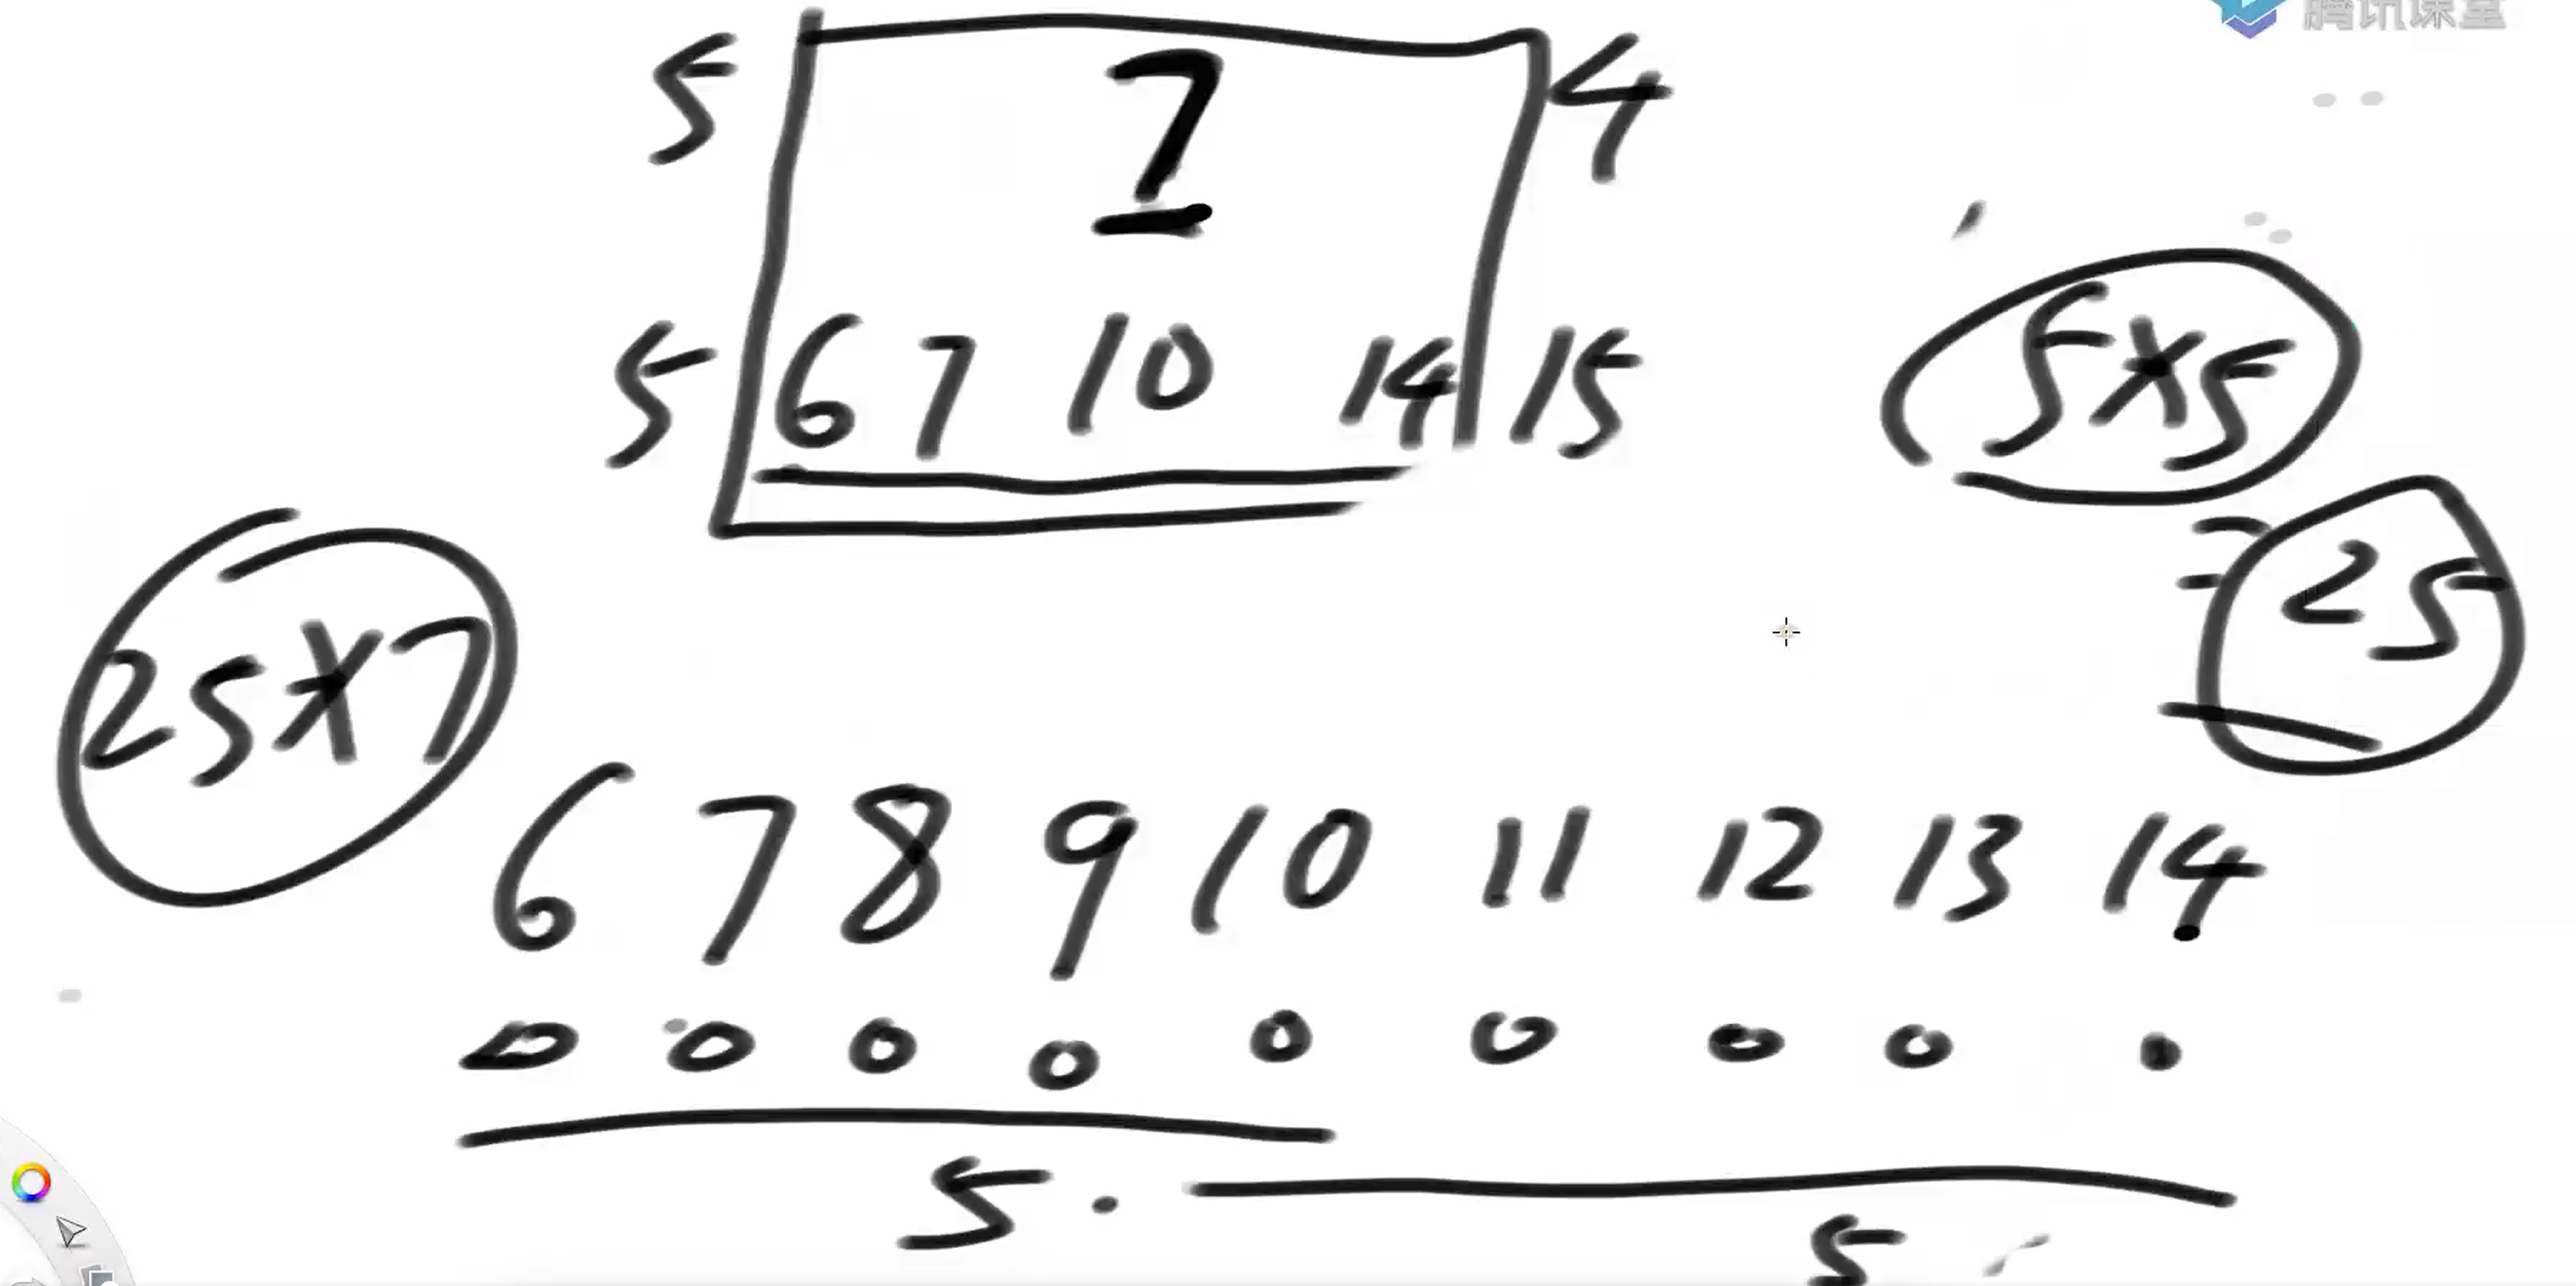 腾讯课堂
5 7 4
5 6 7 10 14 15
5×5
= 25
25×7
6 7 8 9 10 11 12 13 14
0 0 0 0 0 0 0 0
5
5